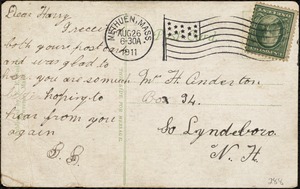 Dear Harry,
I received
both your postcards
and was glad to
hear you are coming
hoping to
hear from you
again
METHUEN, MASS.
AUG 26
6-30A
1911
Mr H. Anderton
Box 94.
So Lyndeboro
N. H.